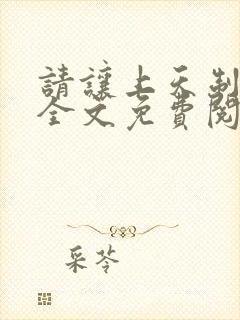 請讓上天制
全文免費閱
采苓